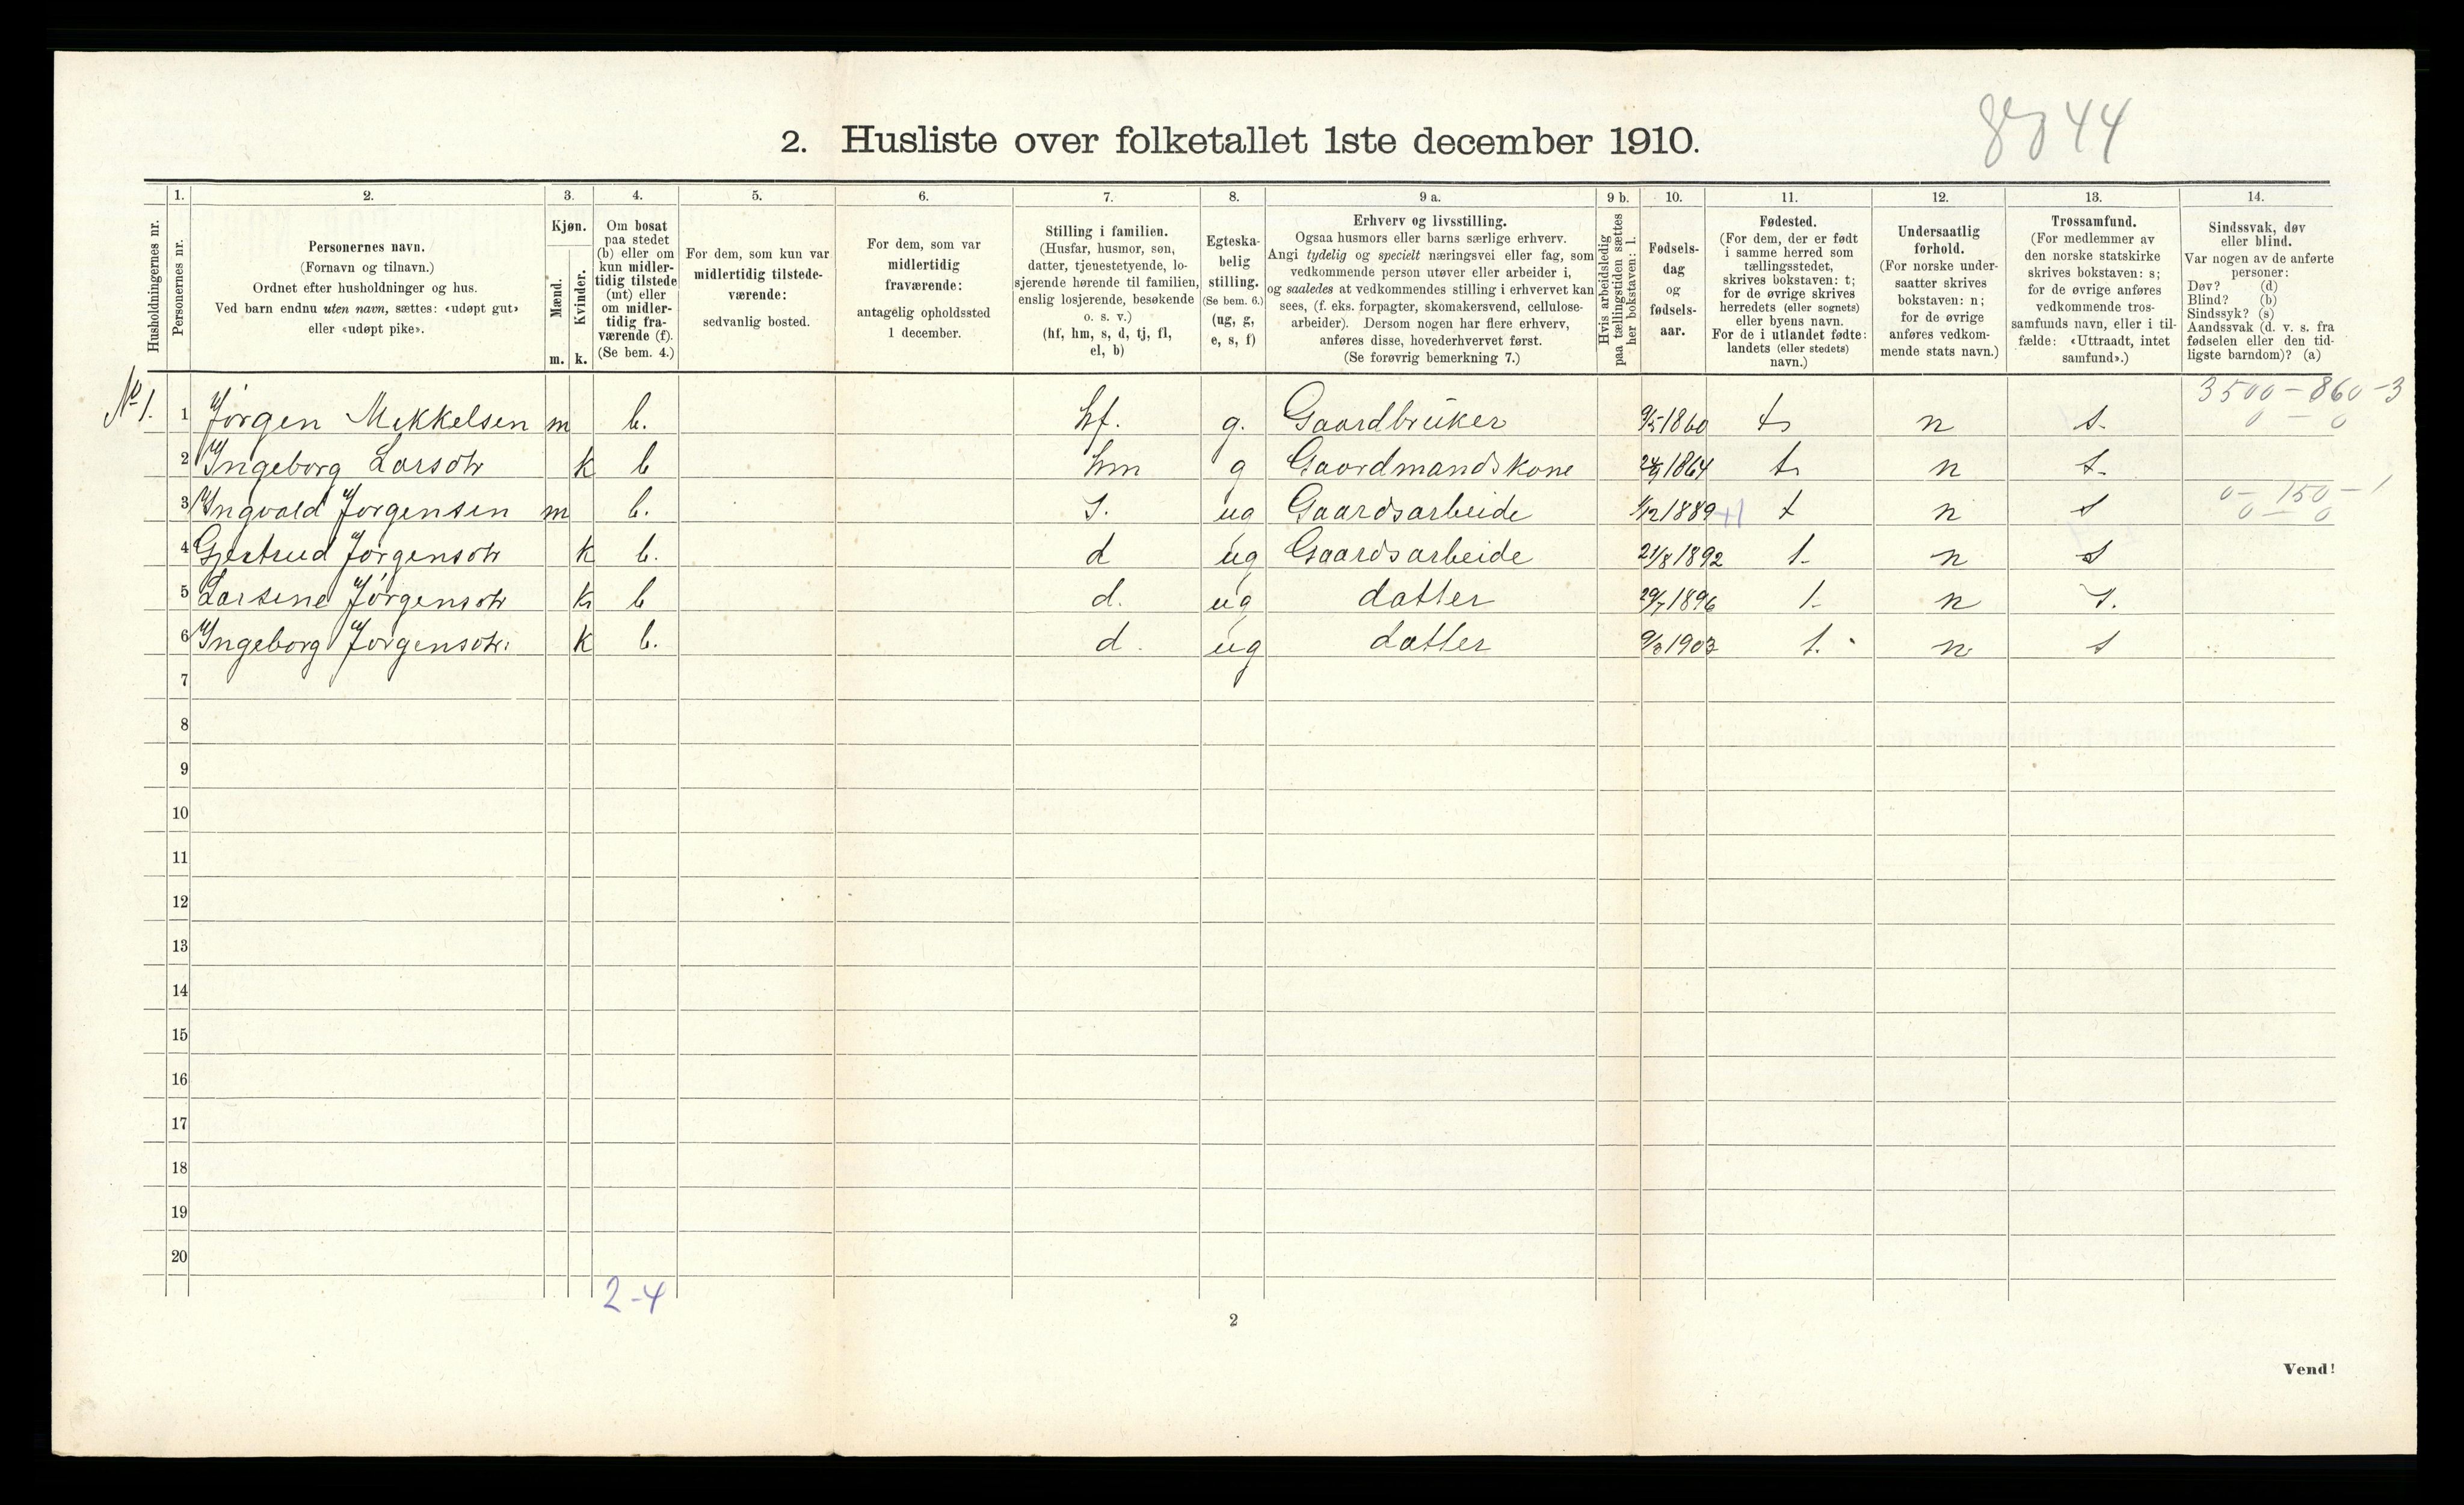 8044
2. Husliste over folketallet 1ste december 1910.
Husholdningernes nr.
1.
Personernes nr.
2.
Personernes navn.
(Fornavn og tilnavn.)
Ordnet efter husholdninger og hus.
Ved barn endnu uten navn, sættes: «udøpt gut»
eller «udøpt pike».
3.
Kjøn.
Mænd.
Kvinder.
m. k.
4.
Om bosat
paa stedet
(b) eller om
kun midler-
tidig tilstede
(mt) eller
om midler-
tidig fra-
værende (f).
(Se bem. 4.)
5.
For dem, som kun var
midlertidig tilstede-
værende:
sedvanlig bosted.
6.
For dem, som var
midlertidig
fraværende:
antagelig opholdssted
1 december.
7.
Stilling i familien.
(Husfar, husmor, søn,
datter, tjenestetyende, lo-
sjerende hørende til familien,
enslig losjerende, besøkende
o. s. v.)
(hf, hm, s, d, tj, fl,
el, b)
8.
Egteska-
belig
stilling.
(Se bem. 6.)
(ug, g,
e, s, f)
9 a.
Erhverv og livsstilling.
Ogsaa husmors eller barns særlige erhverv.
Angi tydelig og specielt næringsvei eller fag, som
vedkommende person utøver eller arbeider i,
og saaledes at vedkommendes stilling i erhvervet kan
sees, (f. eks. forpagter, skomakersvend, cellulose-
arbeider). Dersom nogen har flere erhverv,
anføres disse, hovederhvervet først.
(Se forøvrig bemerkning 7.)
9 b.
Hvis arbeidsledig
paa tællingstiden sættes
her bokstaven: l.
10.
Fødsels-
dag
og
fødsels-
aar.
11.
Fødested.
(For dem, der er født
i samme herred som
tællingsstedet,
skrives bokstaven: t;
for de øvrige skrives
herredets (eller sognets)
eller byens navn.
For de i utlandet fødte:
landets (eller stedets)
navn.)
12.
Undersaatlig
forhold.
(For norske under-
saatter skrives
bokstaven: n;
for de øvrige
anføres vedkom-
mende stats navn.)
13.
Trossamfund.
(For medlemmer av
den norske statskirke
skrives bokstaven: s;
for de øvrige anføres
vedkommende tros-
samfunds navn, eller i til-
fælde: «Uttraadt, intet
samfund».)
14.
Sindssvak, døv
eller blind.
Var nogen av de anførte
personer:
Døv? (d)
Blind? (b)
Sindssyk? (s)
Aandssvak (d. v. s. fra
fødselen eller den tid-
ligste barndom)? (a)
3500 - 860 - 3
No 1. 1 Jörgen Mikkelsen m b. hf. g. Gaardbrüker 9/5 1860 t n s. 0 - 0
2 Ingeborg Larsdtr k b hm g Gaardmandskone 1864 t. n s.
0 - 150 - 1
3 Yngvald Jorgensen m b. S. ug Gaardsarbeide 1/12 1889 +1 t n s 0 - 0
4 Gjertrud Jörgensdtr k b. d ug Gaardsarbeide 21/8 1892 t. n s
5 Larsine Jörgensdtr k b d. ug datter 29/7 1896 t. n s.
6 Ingeborg Jörgensdtr. k b. d. ug datter 1903 t. n s
7
8
9
10
11
12
13
14
15
16
17
18
19
20
2-4
2
Vend!